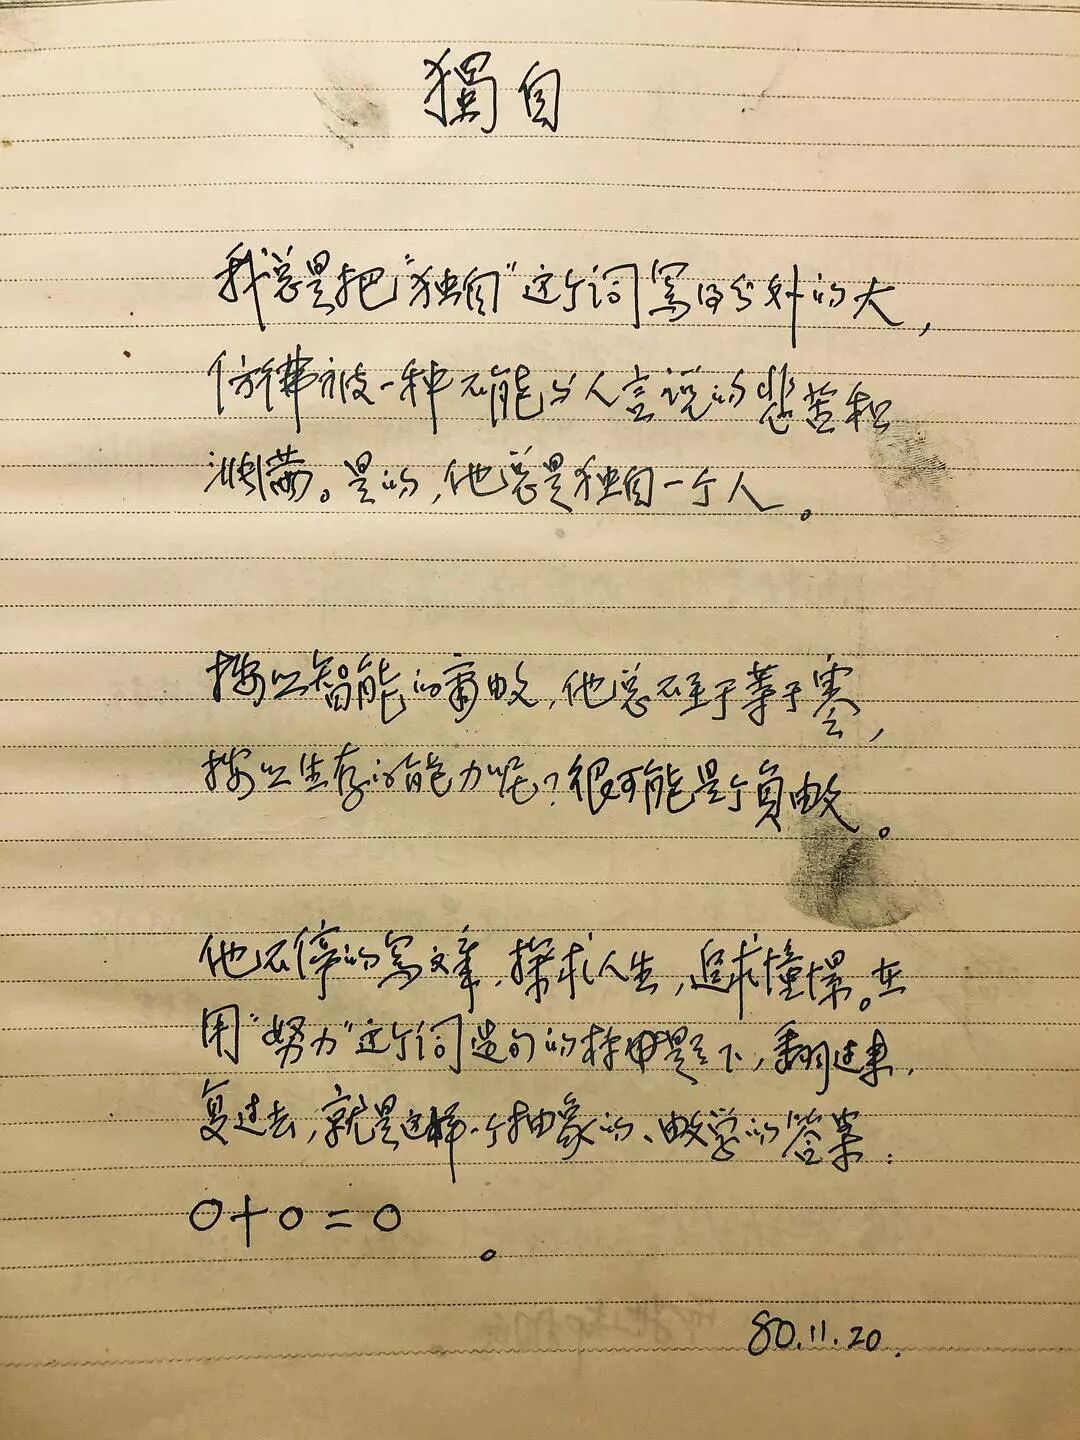 獨自
我总是把“独自”这个词写得分外的大，
仿彿被一种不能与人言说的悲苦和
渊薮。是的，他总是独自一个人。
按以智能的商数，他总不至于等于零，
按以生存的能力呢？很可能是个负数。
他不停的写文章，探求人生，追求憧憬。在
用“努力”这个词造句的标题下，翻过来，
复过去，就是这样一个抽象的、数学的答案：
0+0=0
。
80.11.20.